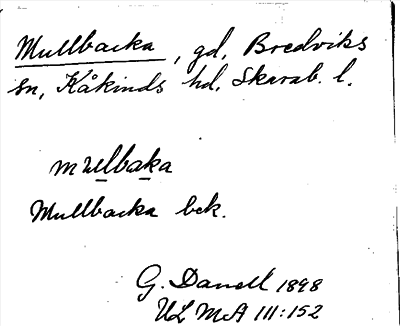 Mullbacka, gd, Bredviks
sn, Kåkinds hd, Skarab. l.
mulbaka
Mullbacka bek.
G. Danell 1898
ULMA 111:152